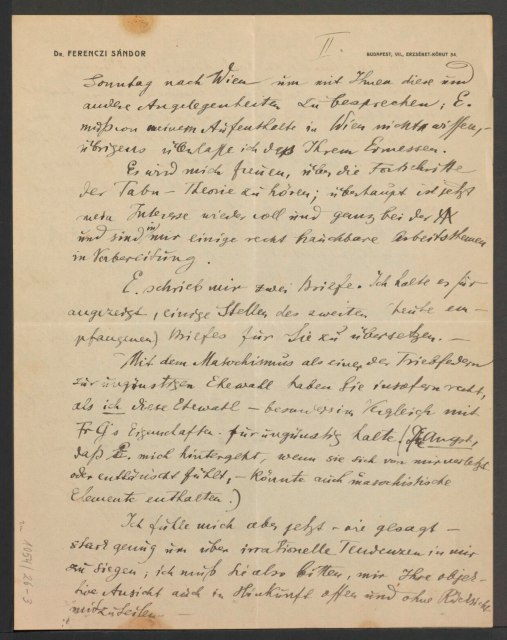 Dr. FERENCZI SÁNDOR
II.
BUDAPEST, VII., ERZSÉBET-KÖRUT 54
Sonntag nach Wien um mit Ihnen diese und
andere Angelegenheiten zu besprechen; E.
muß von meinem Aufenthalte in Wien nichts wissen, –
übrigens überlasse ich das Ihrem Ermessen.
Es wird mich freuen, über die Fortschritte
der Tabu-Theorie zu hören; überhaupt ist jetzt
mein Interesse wieder voll und ganz bei der
und sind in mir einige recht brauchbare Arbeitsthemen
in Vorbereitung.
E. schrieb mir zwei Briefe. Ich halte es für
angezeigt, einige Stellen des zweiten heute em-
pfangenen) Briefes für Sie zu übersetzen. –
Mit dem Masochismus als einer der Triebfedern
zur ungünstigen Ehewahl haben Sie insofern recht,
als ich diese Ehewahl – besonders im Vergleich mit
Fr G's Eigenschaften für ungünstig halte. (Die Angst,
daß E. mich hintergeht, wenn sie sich von mir verletzt
oder enttäuscht fühlt, – könnte auch masochistische
Elemente enthalten.)
Ich fühle mich aber jetzt – wie gesagt –
stark genug um über irrationelle Tendenzen in mir
zu siegen; ich muß Sie also bitten, mir Ihre objek-
tive Ansicht auch in Hinkunft offen und ohne Rücksicht
mitzuteilen.
1054/26-3